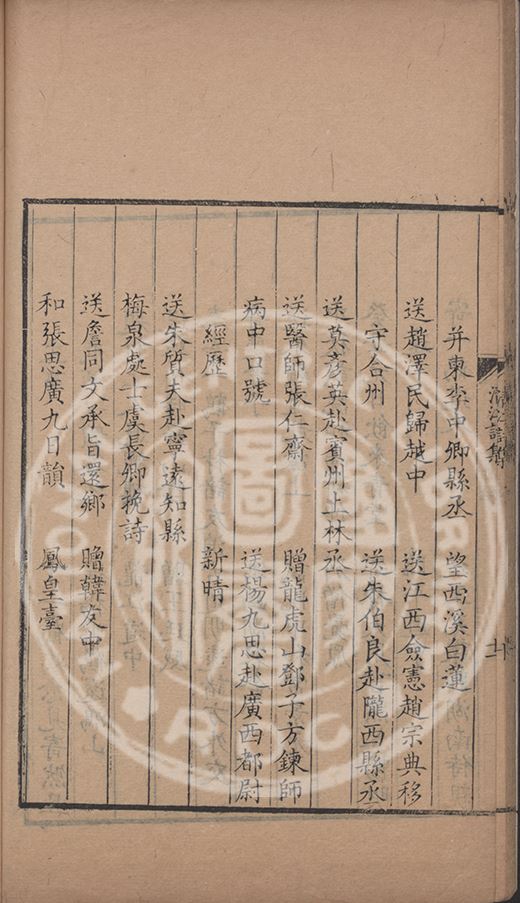 并柬李中卿縣丞 望西溪白蓮
送趙澤民歸越中 送江西僉憲趙宗典移
守台州 送朱伯良赴隴西縣丞
送莫彥英赴賓州上林丞
送醫師張仁齋 贈龍虎山鄧子方鍊師
病中口號 送楊九思赴廣西都尉
經歷 新晴
送朱質夫赴寧遠知縣
梅泉處士虞長卿輓詩
送詹同文承旨還鄉 贈韓友中
和張思廣九日韻 鳳皇臺